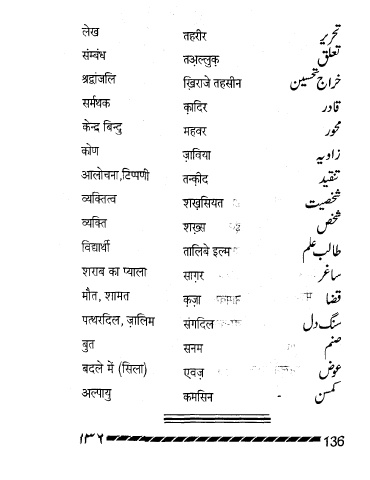 लेख तहरीर تحریر
संम्बंध तअल्लुक़ تعلق
श्रद्वांजलि ख़िराजे तहसीन خراج تحسین
सर्मथक क़ादिर قادر
केन्द्र बिन्दु महवर محور
कोण ज़ाविया زاویہ
आलोचना,टिप्पणी तन्क़ीद تنقید
व्यक्तित्व शख़्सियत شخصیت
व्यक्ति शख़्स شخص
विद्यार्थी तालिबे इल्म طالب علم
शराब का प्याला साग़र ساغر
मौत, शामत क़ज़ा قضا
पत्थरदिल, ज़ालिम संगदिल سنگ دل
बुत सनम صنم
बदले में (सिला) एवज़ عوض
अल्पायु कमसिन - کمسن
۱۳۶ 136